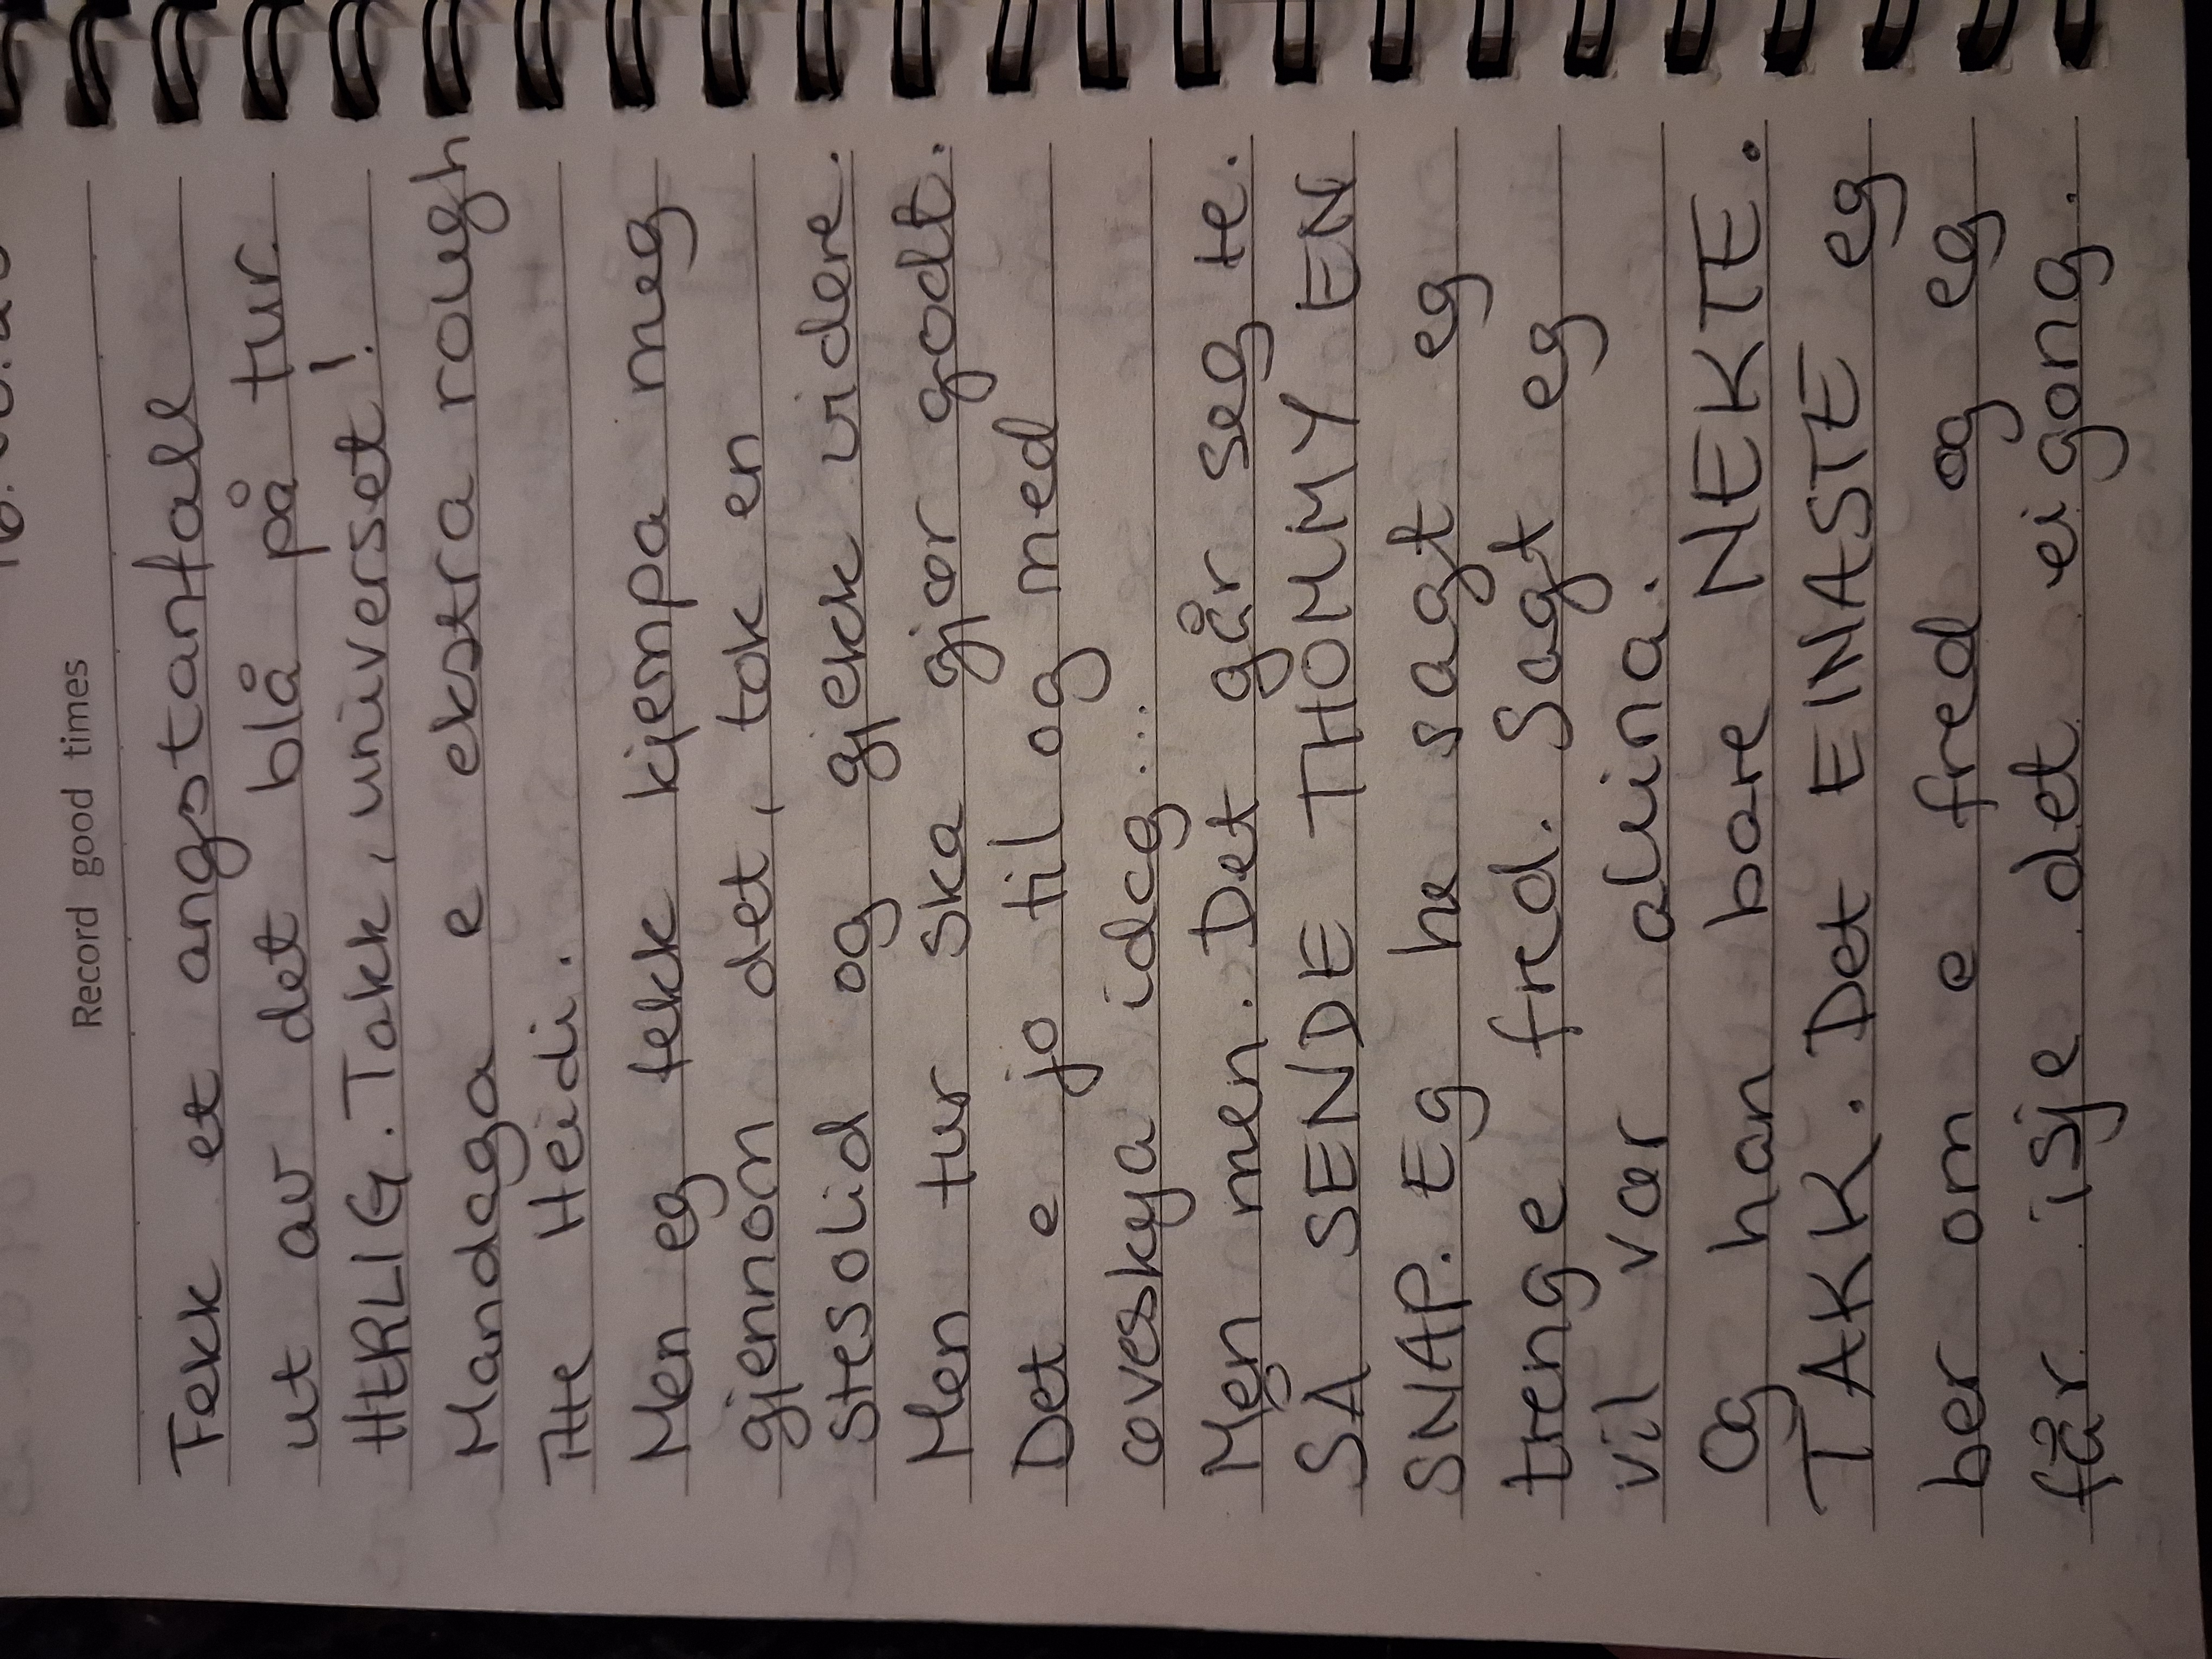 Record good times
Fekk et angstanfall
ut av det blå på tur.
HERLIG. Takk, universet!
Mandaga e ekstra rough
Tte Heidi.
Men eg fekk kjempa meg
gjennom det, tok en
stesolid og gjekk videre.
Men tur ska gjør godt.
Det e jo til og med
øveskya idag...
Men men. Det går seg te.
SÅ SENDE THOMMY EN
SNAP. Eg he sagt eg
trenge fred. Sagt eg
vil vær aleina.
Og han bare NEKTE.
TAKK. Det EINASTE eg
ber om e fred og eg
får isje det eigong.